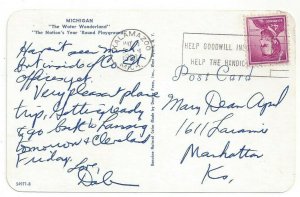 MICHIGAN
"The Water Wonderland"
"The Nation's Year 'Round Playground"
KALAMAZOO
HELP GOODWILL IN
HELP THE HANDIC
Post Card
Haven't seen much
but inside of Co.
offices yet.
Very pleasant plane
trip, getting ready
to go back to Lansing
tomorrow & Cleveland
Friday.
Love,
Dale
Mary Dean April
1611 Laramie
Manhattan
Ks.
54977-B